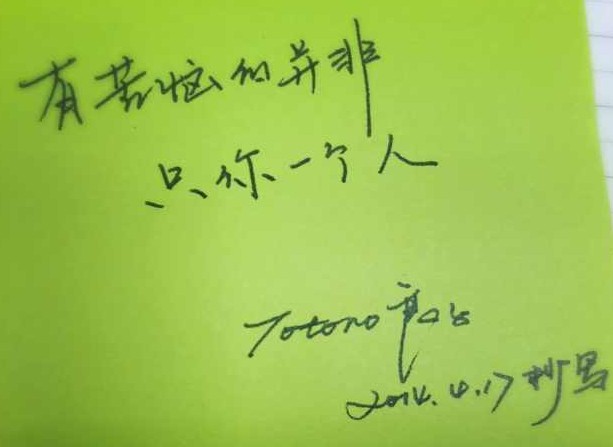 有苦恼的并非
只你一个人
Totoro
2014.4.17 抄写